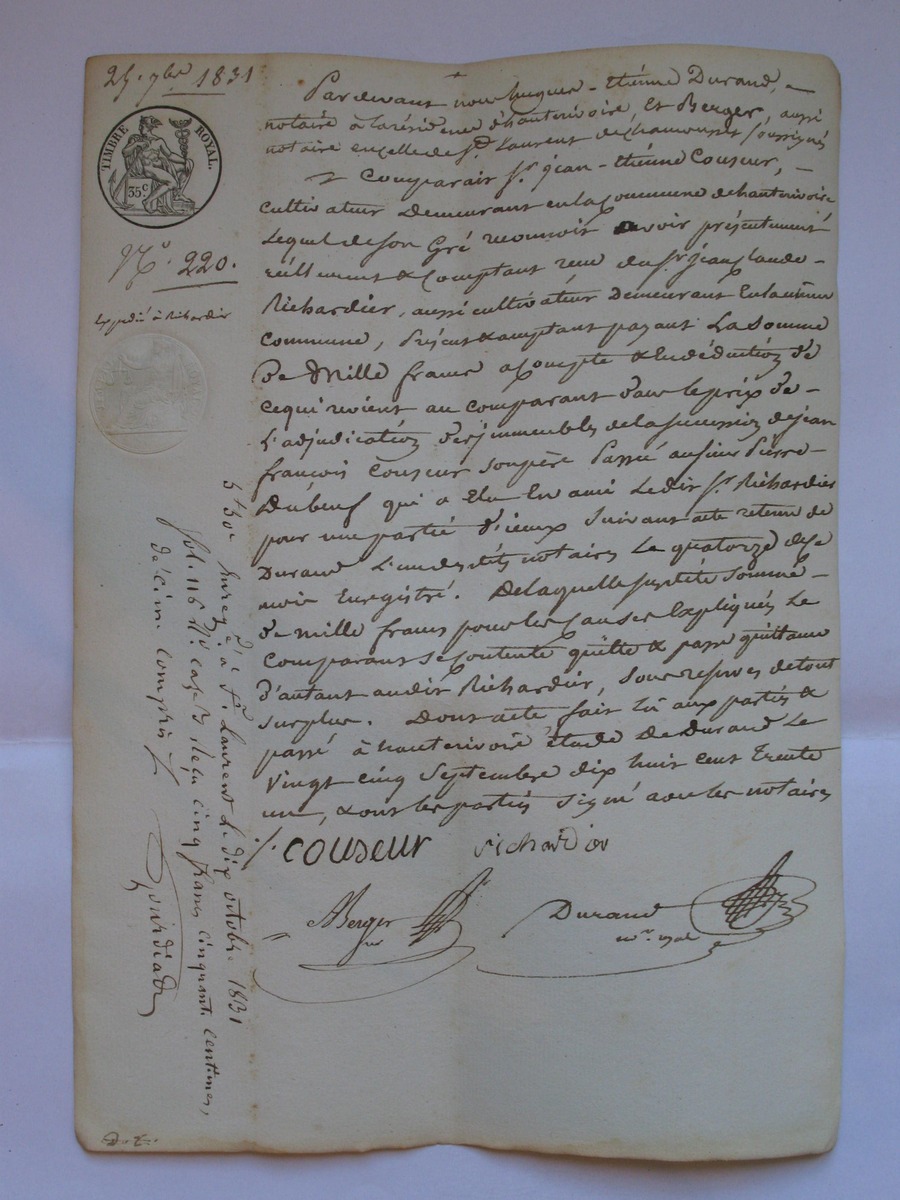 25. 7bre 1831
TIMBRE ROYAL
35 c
N.° 220.
Expédié à Richardier
Pardevant nous hugues-thiénne Durand,
notaire à la résidence d'hauterivoire, Et Berger, aussi
notaire en celle de St Laurent de Chamousset soussignés
Comparait Sr. jean-thiénne Couseur,
cultivateur Demeurant en la Commune de hauterivoire
Lequel de son Gré reconnoit avoir présentement
réellement & Comptant reçu du Sr. jean Claude
Richardier, aussi cultivateur Demeurant En la même
Commune, Présent & comptant payant La Somme
De Mille francs acompte & En déduction de
ce qui revient au comparant dans le prix de
L'adjudication des immeubles de la succession de jean
françois Couseur son père Passée au sieur Pierre
Dubeuf qui a Elu En ami Ledit Sr. Richardier
pour une partie d'iceux suivant acte retenu de
Durand L'un desdits notaires Le quatorze de ce
mois Enregistré. De laquelle susdite somme
de mille francs pour les causes Expliquées Le
Comparant se contente quitte & passe quittance
d'autant audit Richardier, sous reserves de tout
surplus. Dont acte fait lu aux parties &
passé à hauterivoire étude De Durand Le
Vingt cinq Septembre dix huit cent trente
un, & ont les parties signé avec les notaires
couseur
richardier
Berger
Durand
Enreg.é à St Laurent Le dix octobre 1831
fol. 116 Ro. case 3 reçu cinq francs cinquante centimes,
décime compris